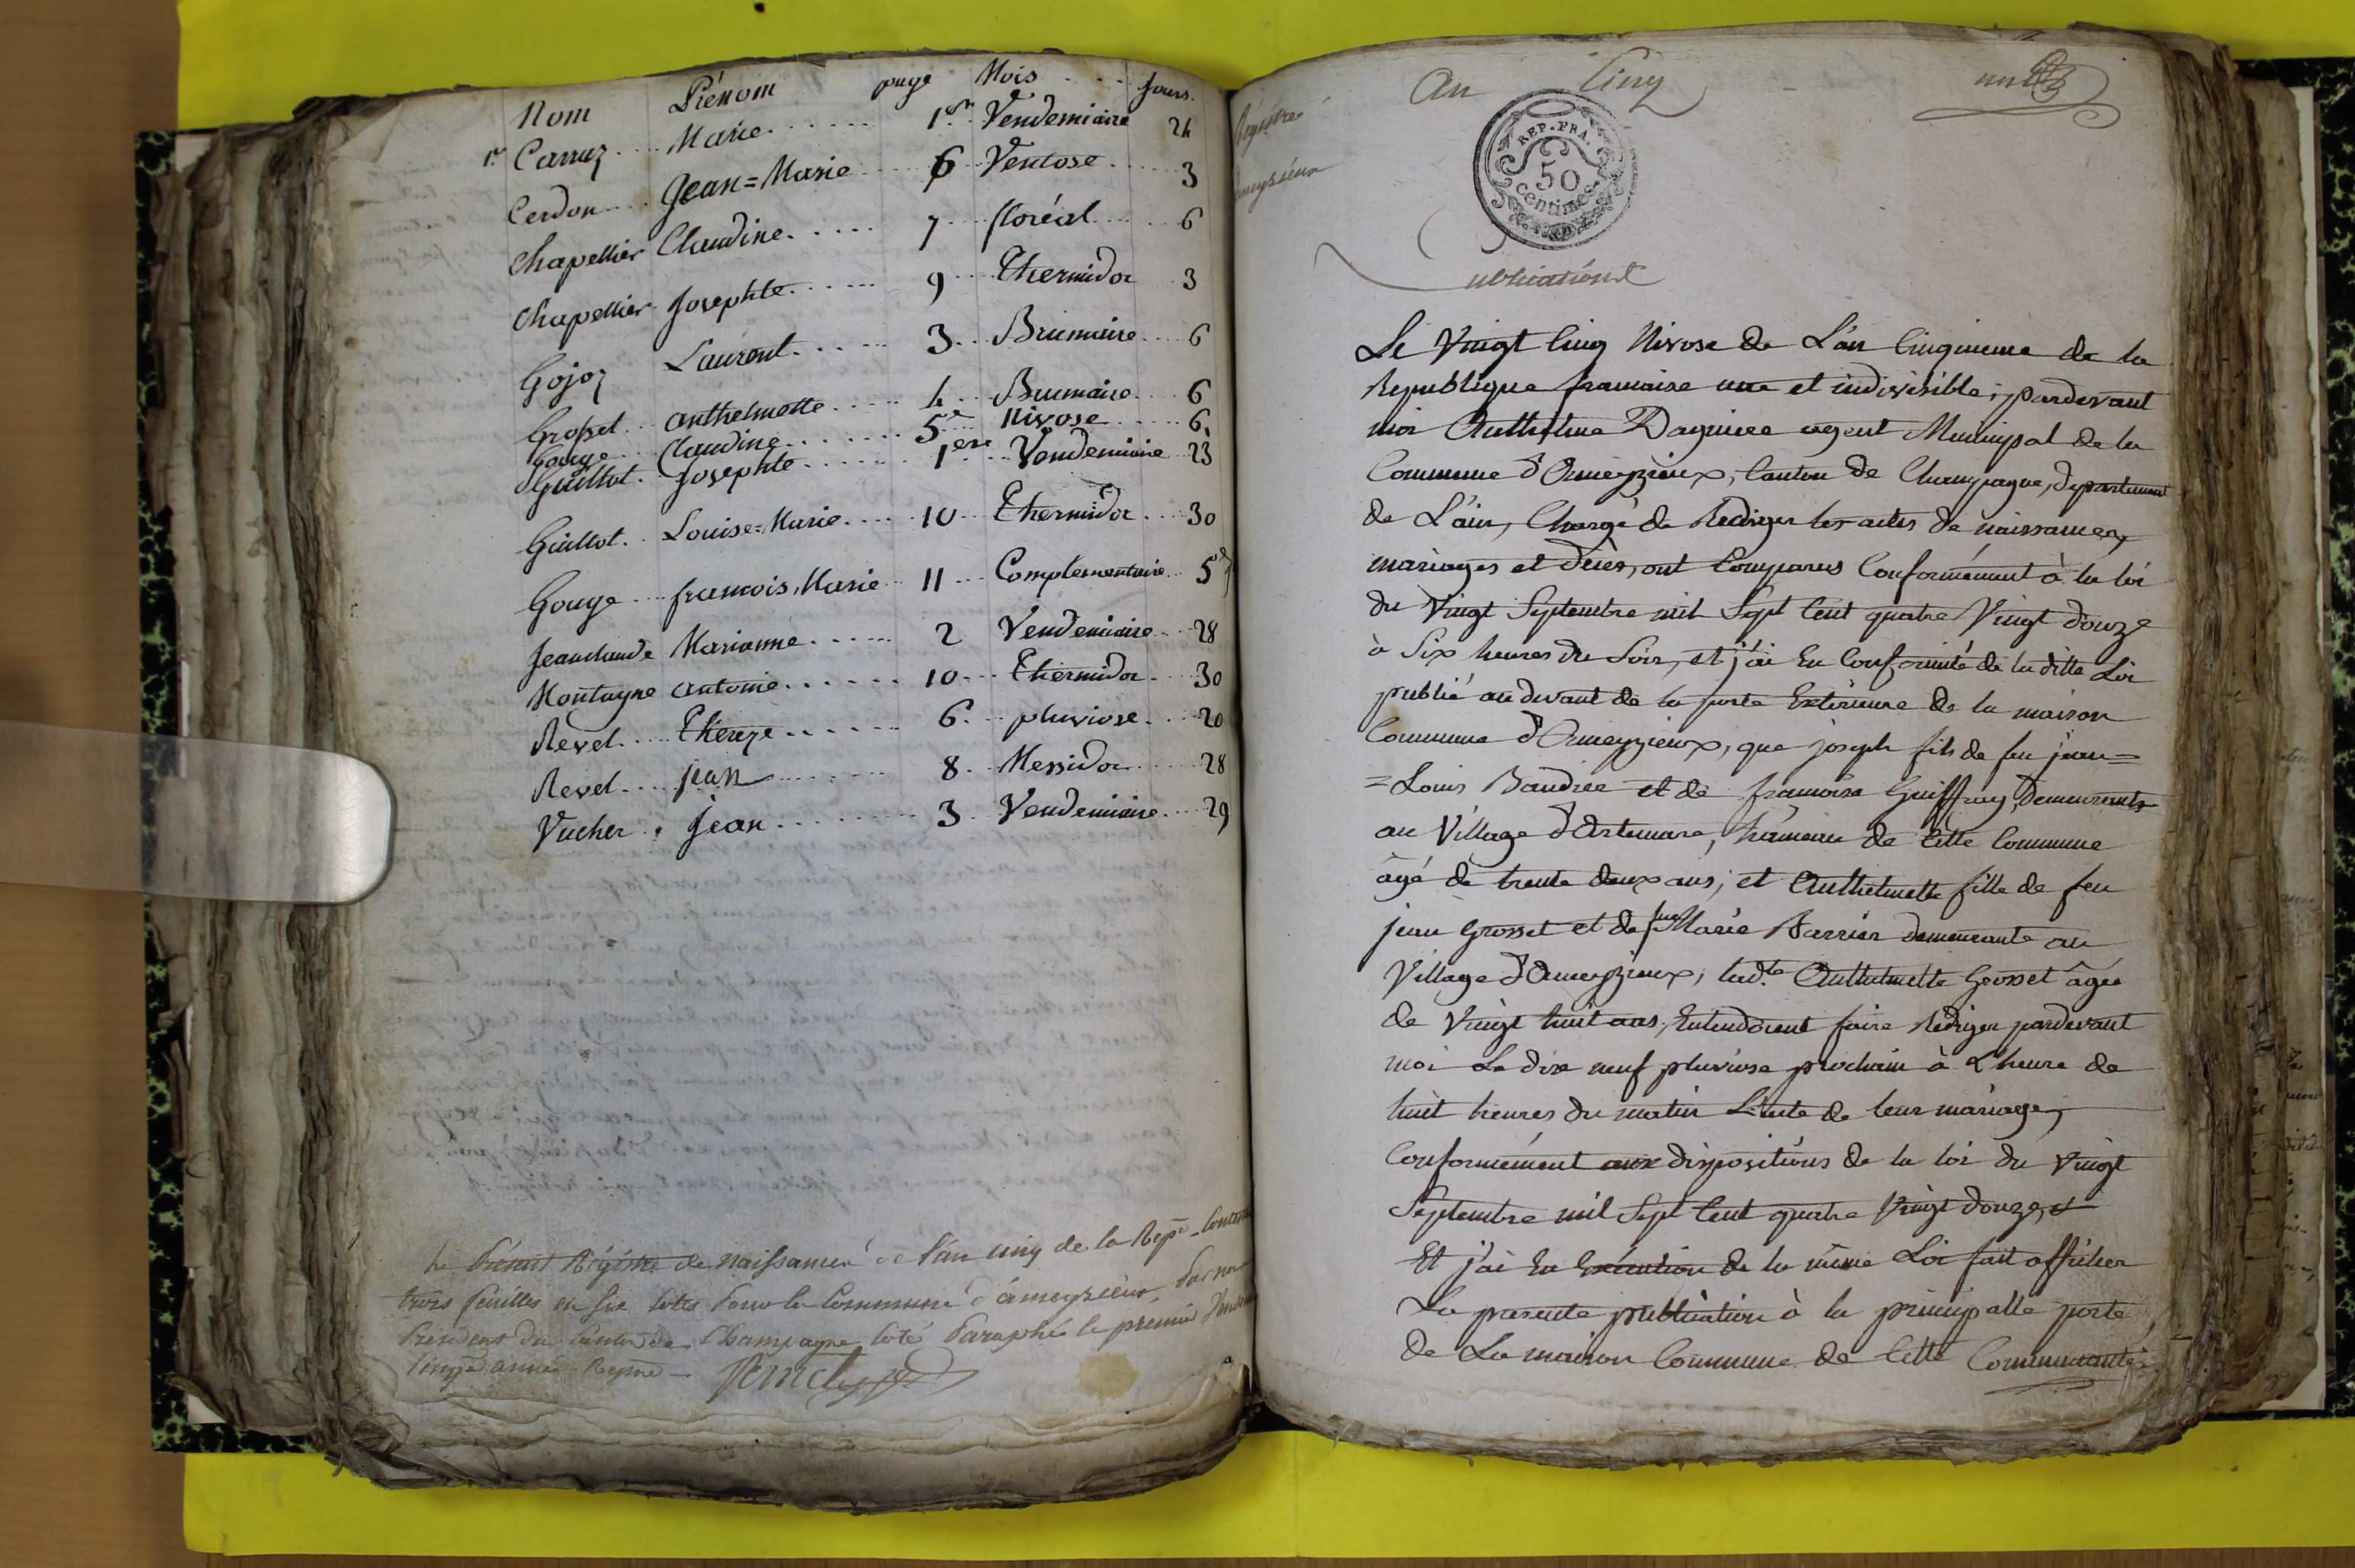 Nom Prénom page Mois jours.
1er Carruz Marie 1er Vendemiaire 24
Cerdon Jean=Marie 6 Ventose 3
Chapellier Claudine 7 floréal 6
Chapellier Josephte 9 Thermidor 3
Gojoz Laurent 3 Brumaire 6
Grosset anthelmette 4 Brumaire 6
Gouge Claudine 5e Nivose 6
Guillot Josephte 1ere Vendemiaire 23
Guillot Louise=Marie 10 Thermidor 30
Gouge francois Marie 11 Complementaire 5e
Jeanclaude Marianne 2 Vendemiaire 28
Montagne antoine 10 Thermidor 30
Revel Thereze 6 pluviose 20
Revel jean 8 Messidor 28
Vucher Jean 3 Vendemiaire 29
Le Présent Régistre de naissances de l'an cinq de la Repe
trois feuilles en six cotes pour la Commune d'ameyzieux, par
Président du canton de Champagne coté paraphé le premier
année
An Cinq
REP. FRA.
50
Centimes
Publications
Le Vingt Cinq Nivose de L'an Cinquieme de la
Republique francaise une et indivisible; pardevant
moi Anthelme Dagniere agent Municipal de la
Commune d'Ameyzieux, Canton de Champagne, departement
de L'ain, Chargé de Rediger les actes de naissances,
mariages et décès, ont Comparus Conformément à la loi
du Vingt Septembre mil Sept Cent quatre Vingt douze
à Six heures du Soir, et j'ai En Conformité de la ditte Loi
publié au devant de la porte Extérieure de la maison
Commune d'Ameyzieux, que joseph fils de feu jean=
=Louis Baudrée et de francoise Guiffray, Demeurants
au Village d'Artemare, hameau de Cette Commune
âgé de trente deux ans; et Anthelmette fille de feu
jean Grosset et de feue Marie Barrier demeurante au
Village d'Ameyzieux; lad.te Anthelmette Grosset âgée
de Vingt huit ans, Entendoient faire Rediger pardevant
moi Le dix neuf pluviose prochain à L'heure de
huit heures du matin L'acte de leur mariage,
Conformément aux dispositions de la loi du Vingt
Septembre mil Sept Cent quatre Vingt douze,
Et j'ai En Exécution de la même Loi fait afficher
La presente publication à la principalle porte
de La maison Commune de Cette Communauté